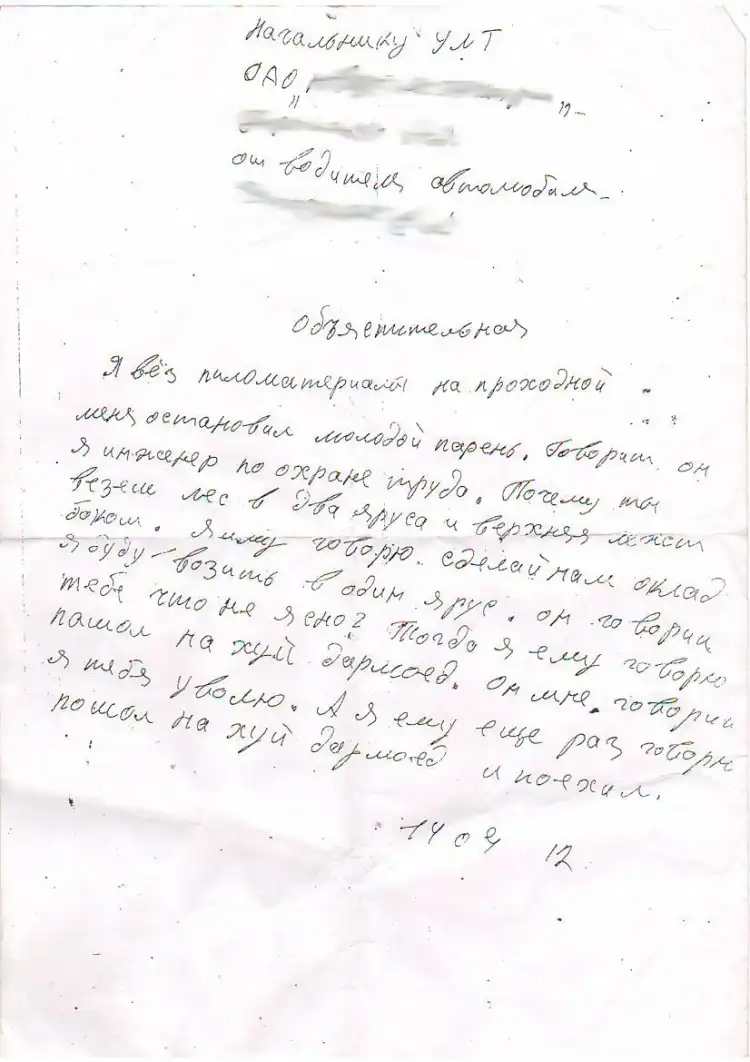 Начальнику УЛТ
ОАО "
" -
от водителя автомобиля
Объяснительная
Я вёз пиломатериалы на проходной
меня остановил молодой парень. Говорит он
я инженер по охране труда. Почему ты
везеш лес в два яруса и верхняя лежит
боком. Я ему говорю. сделай нам оклад
я буду возить в один ярус. он говорит
тебе что не ясно? Тогда я ему говорю
пашол на хуй дармоед. он мне. говорит
я тебя уволю. А я ему еще раз говорю
пошол на хуй дармоед и поехил.
14 09 12